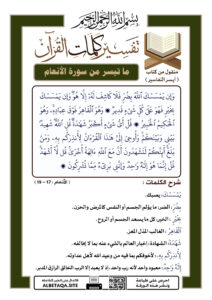 بسم الله الرحمن الرحيم
تفسير كلمات القرآن
ما تيسر من سورة الأنعام
منقول من كتاب
( أيسر التفاسير )
وَإِن يَمْسَسْكَ اللَّهُ بِضُرٍّ فَلَا كَاشِفَ لَهُ إِلَّا هُوَ وَإِن يَمْسَسْكَ
بِخَيْرٍ فَهُوَ عَلَى كُلِّ شَيْءٍ قَدِيرٌ وَهُوَ الْقَاهِرُ فَوْقَ عِبَادِهِ وَهُوَ
الْحَكِيمُ الْخَبِيرُ قُلْ أَيُّ شَيْءٍ أَكْبَرُ شَهَادَةً قُلِ اللَّهُ شَهِيدٌ
بَيْنِي وَبَيْنَكُمْ وَأُوحِيَ إِلَيَّ هَذَا الْقُرْآنُ لِأُنذِرَكُم بِهِ وَمَن
بَلَغَ أَئِنَّكُمْ لَتَشْهَدُونَ أَنَّ مَعَ اللَّهِ آلِهَةً أُخْرَى قُل لَّا أَشْهَدُ
قُلْ إِنَّمَا هُوَ إِلَهٌ وَاحِدٌ وَإِنَّنِي بَرِيءٌ مِّمَّا تُشْرِكُونَ
شرح الكلمات :
( الأنعام : 17 – 19 )
يَمْسَسْكَ: يصبك.
بِضُرٍّ: الضر: ما يؤلم الجسم أو النفس كالمرض والحزن.
بِخَيْرٍ: الخير: كل ما يسعد الجسم أو الروح.
الْقَاهِرُ: الغالب المذل المعز.
شَهَادَةً: الشهادة: إخبار العالم بالشيء عنه بما لا يخالفه.
لِأُنذِرَكُم بِهِ: لأخوفكم بما فيه من وعيد الله لأهل عداوته.
إِلَهٌ وَاحِدٌ: معبود واحد لأنه رب واحد، إذ لا يعبد إلا الرب الخالق الرازق المدبر.
ALBETAQA.SITE